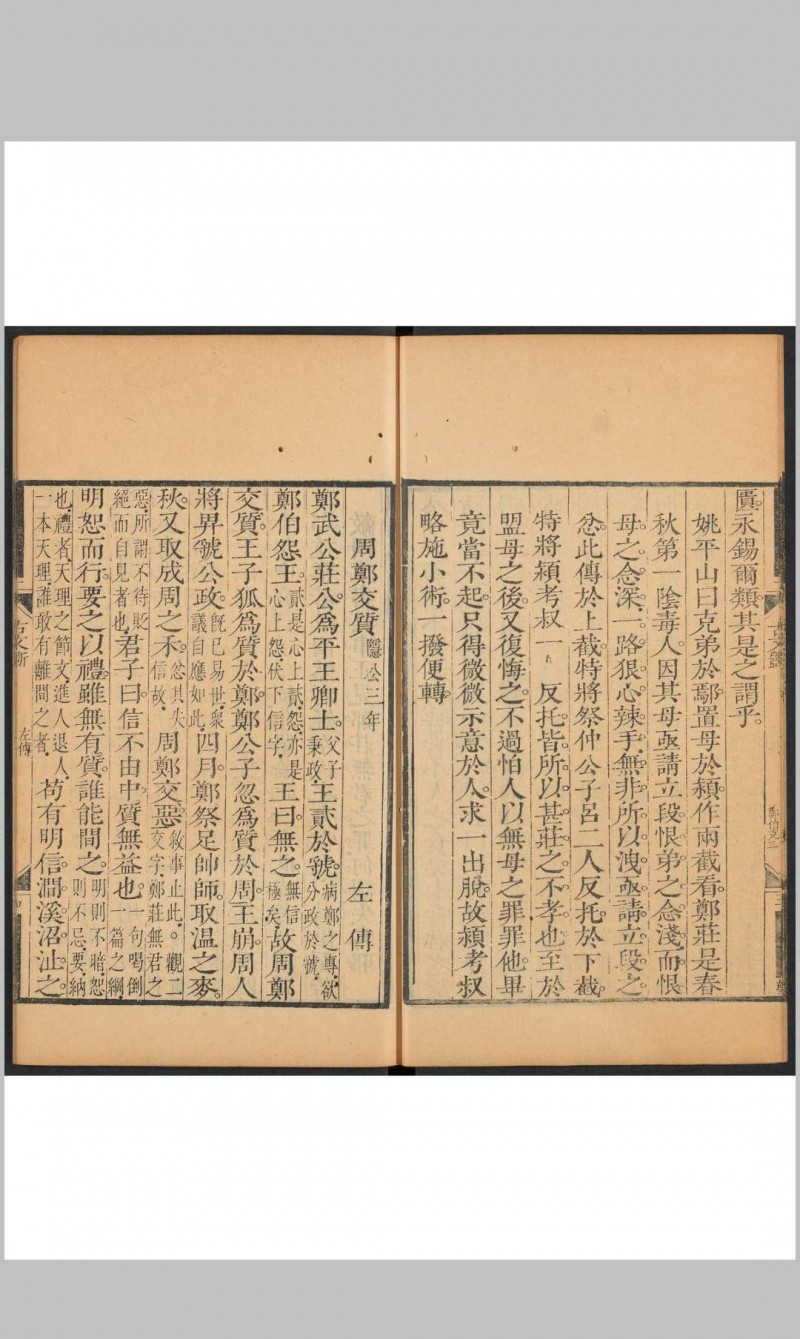 匱永錫爾類其是之謂乎
姚平山曰克弟於鄢置母於潁作兩截看鄭莊是春
秋第一陰毒人因其母亟請立段恨弟之念淺而恨
母之念深一路狠心辣手無非所以洩亟請立段之
忿此傳於上截特將祭仲公子呂二人反托於下截
特將潁考叔一 反托皆所以甚莊之不孝也至於
盟母之後又復悔之不過怕人以無母之罪罪他畢
竟當不起只得微微示意於人求一出脫故潁考叔
略施小術一撥便轉
周鄭交質 隱公三年 左傳
鄭武公莊公為平王卿士父子秉政王貳於虢病鄭之專欲分政於虢
鄭伯怨王貳是心上貳怨亦是心上怨伏下信字王曰無之無信極矣故周鄭
交質王子狐為質於鄭鄭公子忽為質於周王崩周人
將畀虢公政既已易世衆議自應如此四月鄭祭足帥師取温之麥
秋又取成周之禾忿其失信故周鄭交惡敘事止此觀二交字鄭莊無君之
惡所謂不待貶絕而自見者也君子曰信不由中質無益也一句喝倒一篇之綱
明恕而行要之以禮雖無有質誰能間之明則不暗恕則不忌要納
也禮者天理之節文進人退人一本天理誰敢有離間之者苟有明信澗溪沼沚之
左傳